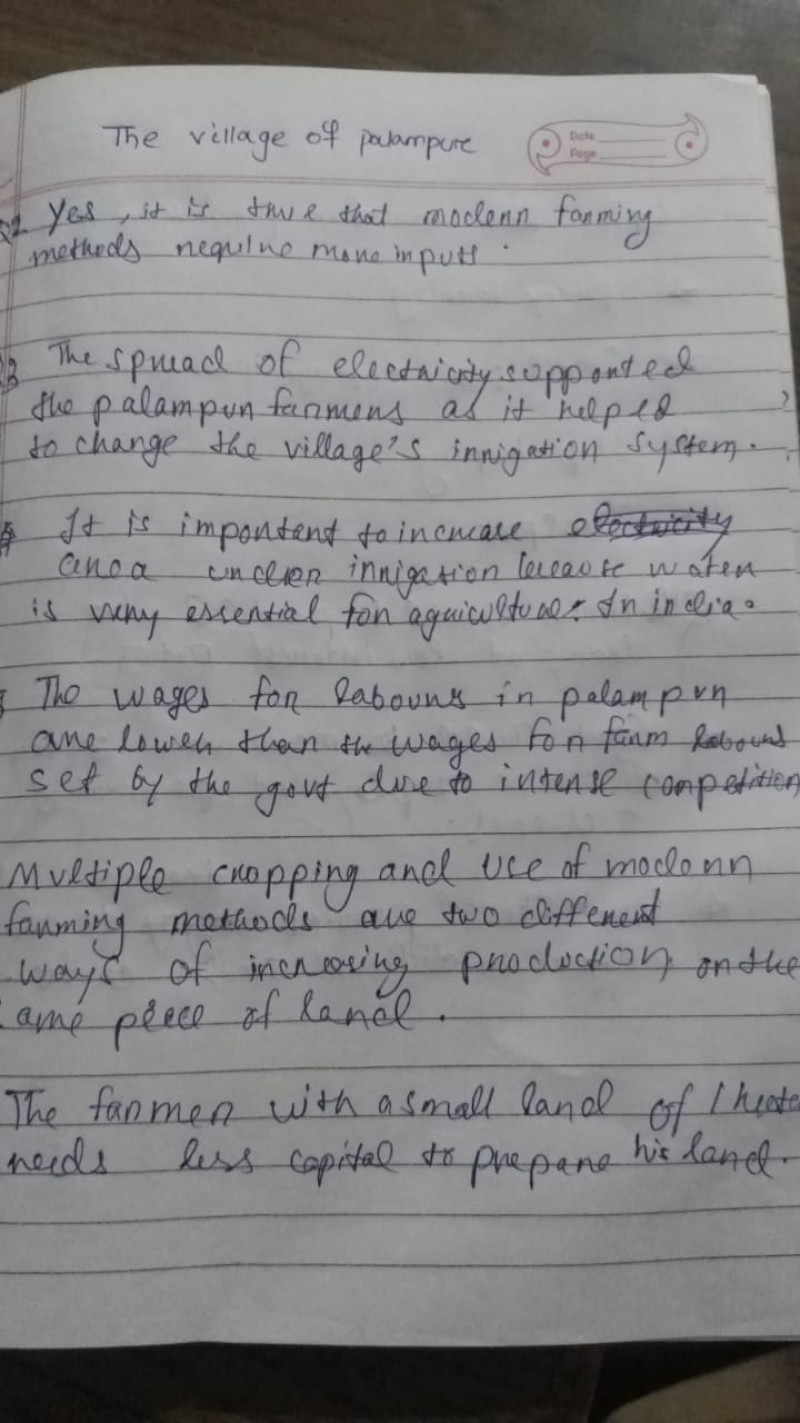 The village of palampure
Date
Page
Yes, it is true that modern farming
methods require more inputs.
The spread of electricity supported
the palampur farmers as it helped
to change the village's irrigation system.
It is important to increase electricity
area under irrigation because water
is very essential for agriculture. In india.
The wages for labours in palampur
are lower than the wages for farm labours
set by the govt due to intense competition
Multiple cropping and use of modern
farming methods are two different
ways of increasing production on the
ame piece of land.
The farmer with a small land of 1 hecta
needs less capital to prepare his land.